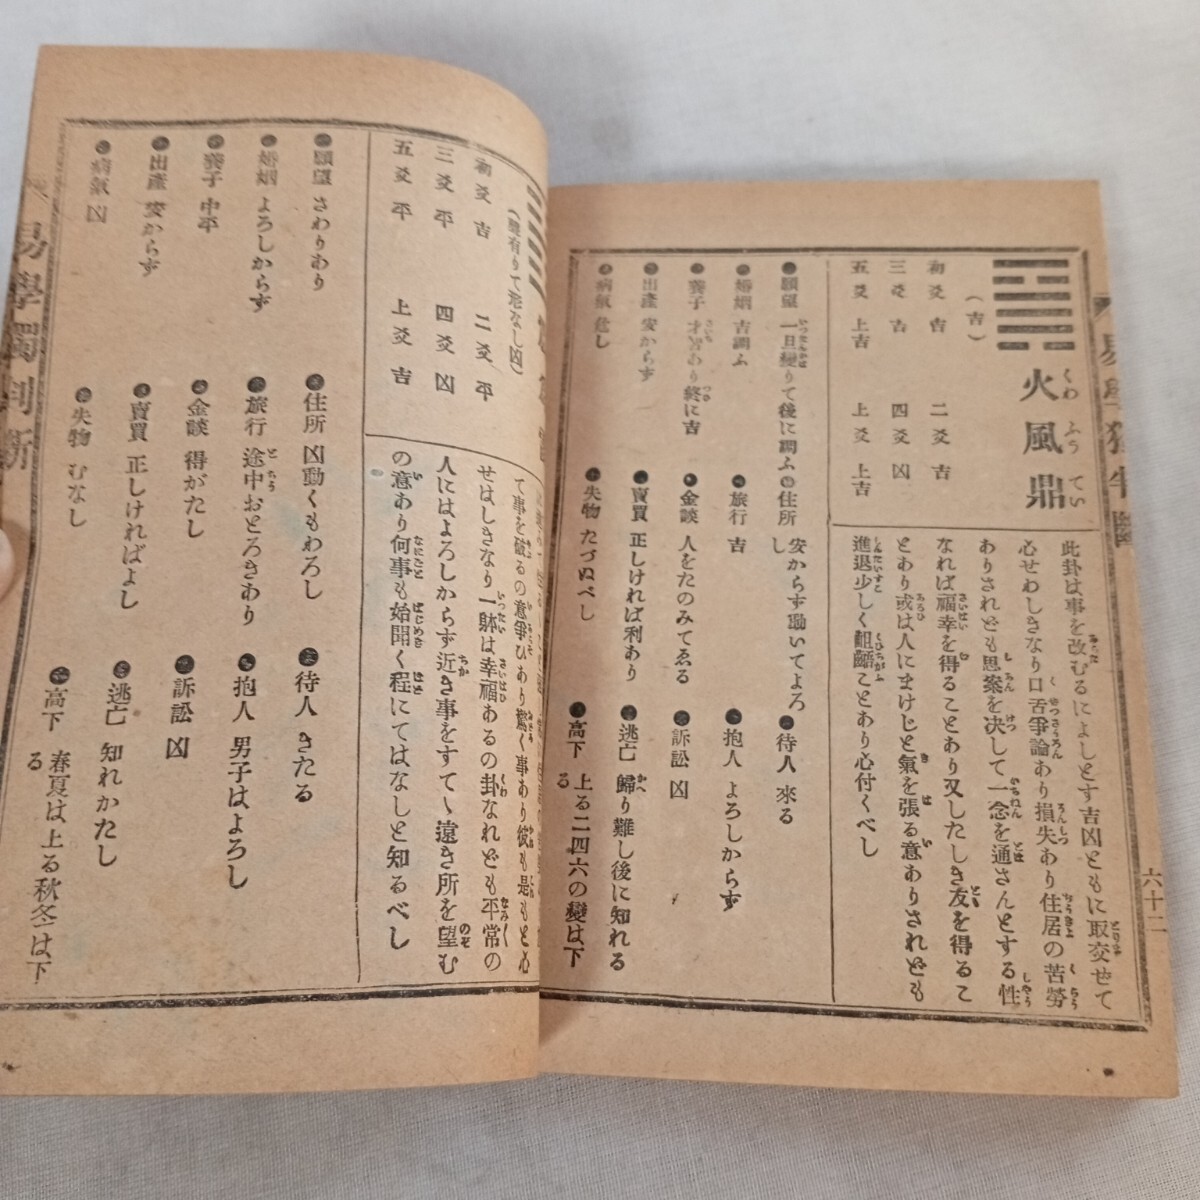 六十二
火風鼎
くわ ふう てい
(吉)
初爻 吉 二爻 吉
三爻 吉 四爻 凶
五爻 上吉 上爻 上吉
此卦は事を改むるによしとす吉凶ともに取交せて
心せわしきなり口舌爭論あり損失あり住居の苦勞
ありされども思案を决して一念を通さんとする性
なれば福幸を得ることあり又したしき友を得るこ
とあり或は人にまけじと氣を張る意ありされども
進退少しく齟齬ことあり心付くべし
●願望 一旦變りて後に調ふ
●婚姻 吉調ふ
●養子 才智あり終に吉
●出產 安からず
●病氣 危し
●住所 安からず動いてよろし
●旅行 吉
●金談 人をたのみてゑる
●賣買 正しければ利あり
●失物 たづぬべし
●待人 來る
●抱人 よろしからず
●訴訟 凶
●逃亡 歸り難し後に知れる
●高下 上る二四六の變は下る
(聲有りて形なし凶)
初爻 吉 二爻 平
三爻 平 四爻 凶
五爻 平 上爻 吉
て事を破るの意爭ひあり驚く事あり彼も是もと心
せはしきなり一躰は幸福あるの卦なれども平常の
人にはよろしからず近き事をすてゝ遠き所を望む
の意あり何事も始聞く程にてはなしと知るべし
●願望 さわりあり
●婚姻 よろしからず
●養子 中平
●出產 安からず
●病氣 凶
●住所 凶動くもわろし
●旅行 途中おどろきあり
●金談 得がたし
●賣買 正しければよし
●失物 むなし
●待人 きたる
●抱人 男子はよろし
●訴訟 凶
●逃亡 知れかたし
●高下 春夏は上る秋冬は下る
易學獨判斷